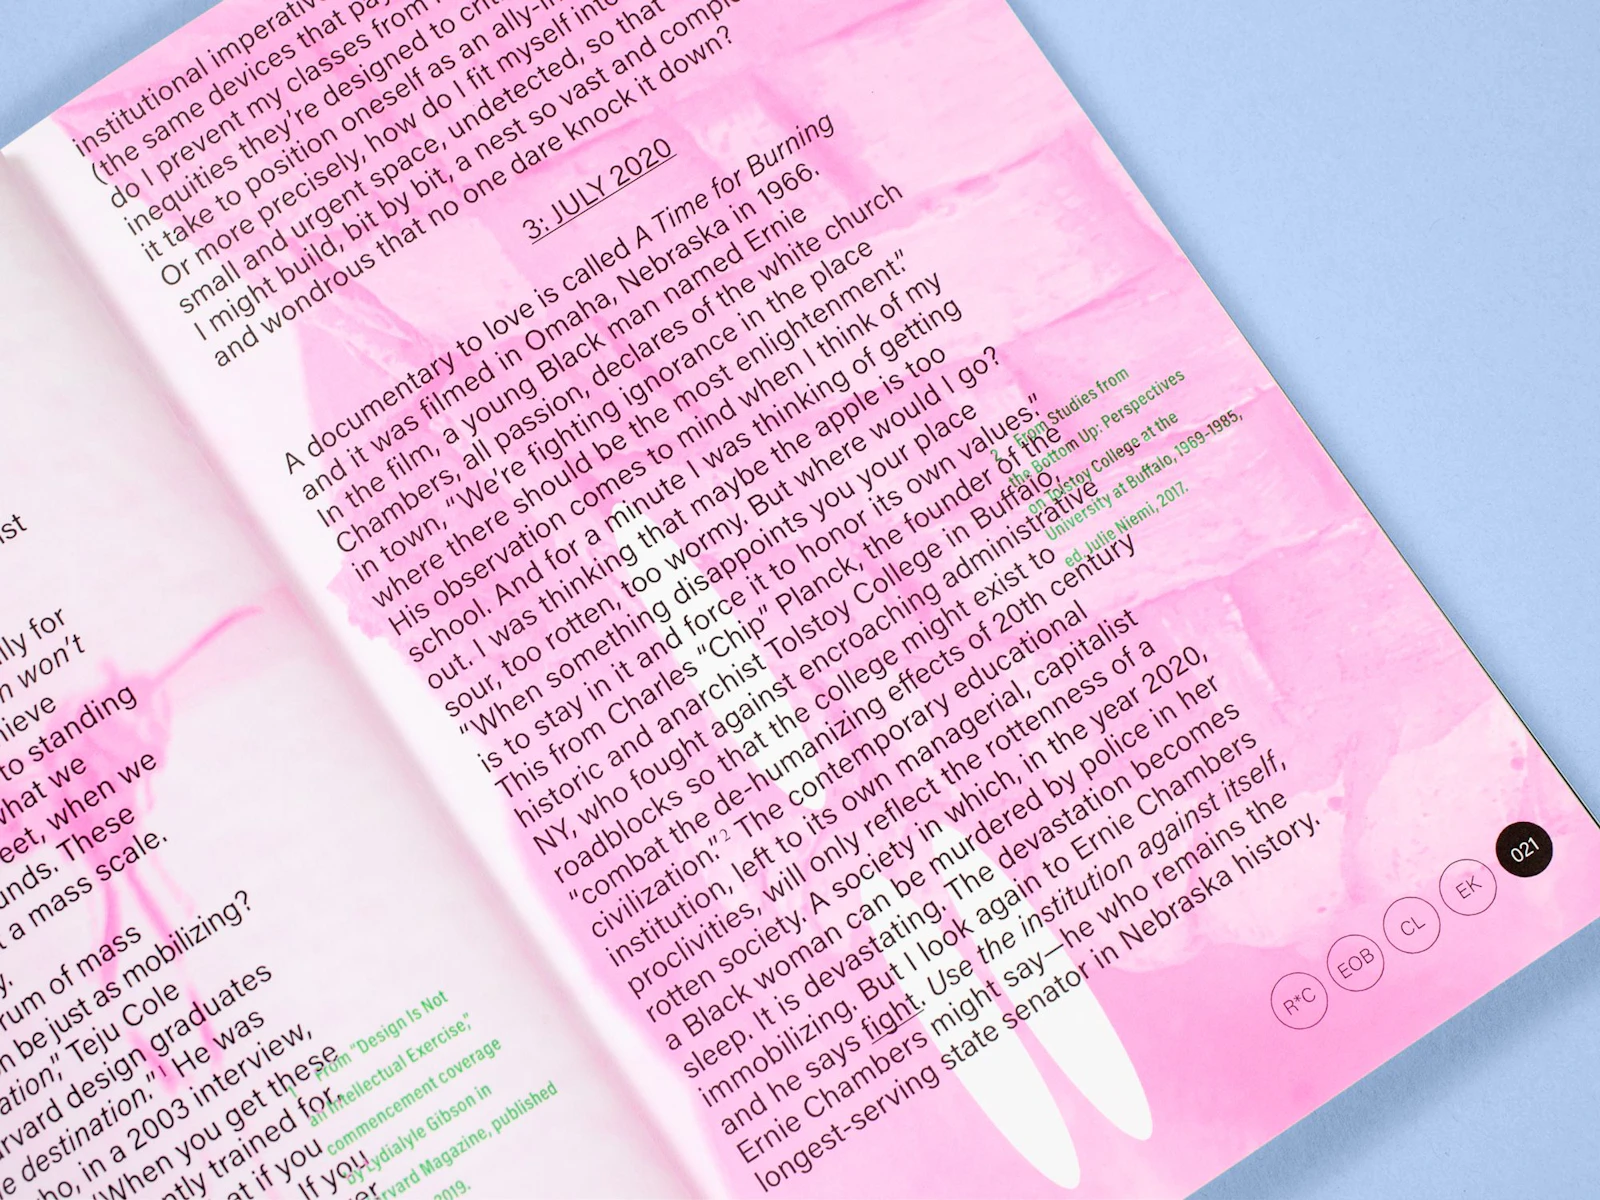 ist
ally for
n won't
hieve
to standing
what we
eet, when we
unds. These
a mass scale.
y.
rum of mass
n be just as mobilizing?
ation," Teju Cole
rvard design graduates
e destination."¹ He was
ho, in a 2003 interview,
"When you get these
ntly trained for,
at if you
If you
1 From "Design Is Not
an Intellectual Exercise,"
commencement coverage
by Lydialyle Gibson in
Harvard Magazine, published
2019.
institutional imperative
(the same devices that pay
do I prevent my classes from
inequities they're designed to crit
it take to position oneself as an ally-in
Or more precisely, how do I fit myself into
small and urgent space, undetected, so that
I might build, bit by bit, a nest so vast and comple
and wondrous that no one dare knock it down?
3: JULY 2020
A documentary to love is called A Time for Burning
and it was filmed in Omaha, Nebraska in 1966.
In the film, a young Black man named Ernie
Chambers, all passion, declares of the white church
in town, "We're fighting ignorance in the place
where there should be the most enlightenment."
His observation comes to mind when I think of my
school. And for a minute I was thinking of getting
out. I was thinking that maybe the apple is too
sour, too rotten, too wormy. But where would I go?
"When something disappoints you your place
is to stay in it and force it to honor its own values."
This from Charles "Chip" Planck, the founder of the
historic and anarchist Tolstoy College in Buffalo,
NY, who fought against encroaching administrative
roadblocks so that the college might exist to
"combat the de-humanizing effects of 20th century
civilization."² The contemporary educational
institution, left to its own managerial, capitalist
proclivities, will only reflect the rottenness of a
rotten society. A society in which, in the year 2020,
a Black woman can be murdered by police in her
sleep. It is devastating. The devastation becomes
immobilizing. But I look again to Ernie Chambers
and he says fight. Use the institution against itself,
Ernie Chambers might say—he who remains the
longest-serving state senator in Nebraska history.
2 From Studies from
the Bottom Up: Perspectives
on Tolstoy College at the
University at Buffalo, 1969-1985,
ed. Julie Niemi, 2017.
R*C EOB CL EK 021